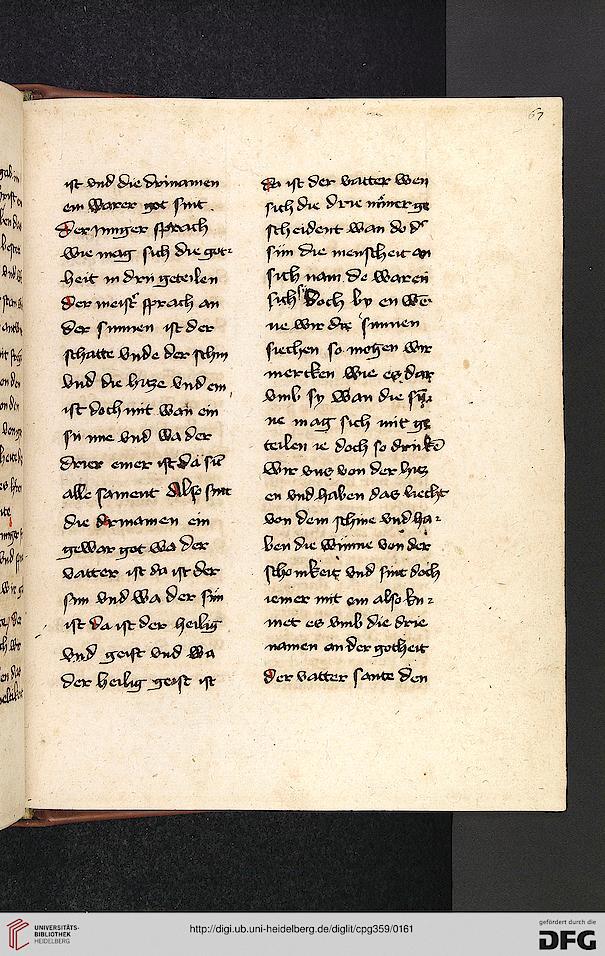 67
ist vnd die drinamen
ein warer got sint
Der Junger sprach
wie mag sich die got-
heit in drü geteilen
Der meist' sprach an
der sunnen ist der
schatte vnde der schin
vnd die hitze vnd ein
ist doch nit wan ein
sunne vnd wa der
drier einer ist da sīt
alle sament Also sint
die drinamen ein
gewar got wa der
vatter ist da ist der
sun vnd wa der sun
ist da ist der heilig
vnd geist vnd wa
der heilig geist ist
da ist der vatter wen
sich die drie nimer ge
scheident wan do d'
sun die menscheit an
sich nam de waren
sich doch by en we-
ne wir die sunnen
siechen so mogen wir
mercken wie es dar
vmb sy wan die sun
ne mag sich nit ge
teilen ie doch so
wir vns von der hitz
en vnd haben das liecht
von dem schine vnd ha-
ben die wunne von der
schonikeit vnd sint doch
iemer mit ein also ku-
met es vmb die drie
namen an der gotheit
Der vatter sante den
UNIVERSITÄTS-
BIBLIOTHEK
HEIDELBERG
http://digi.ub.uni-heidelberg.de/diglit/cpg359/0161
gefördert durch die
DFG